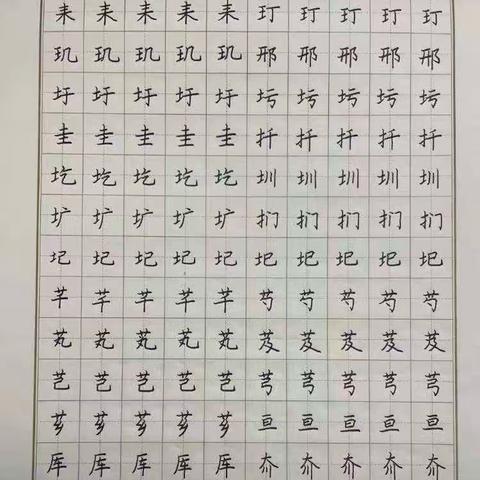 耒耒耒耒耒玎玎玎玎玎
玑玑玑玑玑邢邢邢邢邢
圩圩圩圩圩圬圬圬圬圬
圭圭圭圭圭扦扦扦扦扦
圪圪圪圪圪圳圳圳圳圳
圹圹圹圹圹扪扪扪扪扪
圮圮圮圮圮圯圯圯圯圯
芊芊芊芊芊芍芍芍芍芍
芄芄芄芄芄芨芨芨芨芨
芑芑芑芑芑芎芎芎芎芎
芗芗芗芗芗亘亘亘亘亘
厍厍厍厍厍夼夼夼夼夼